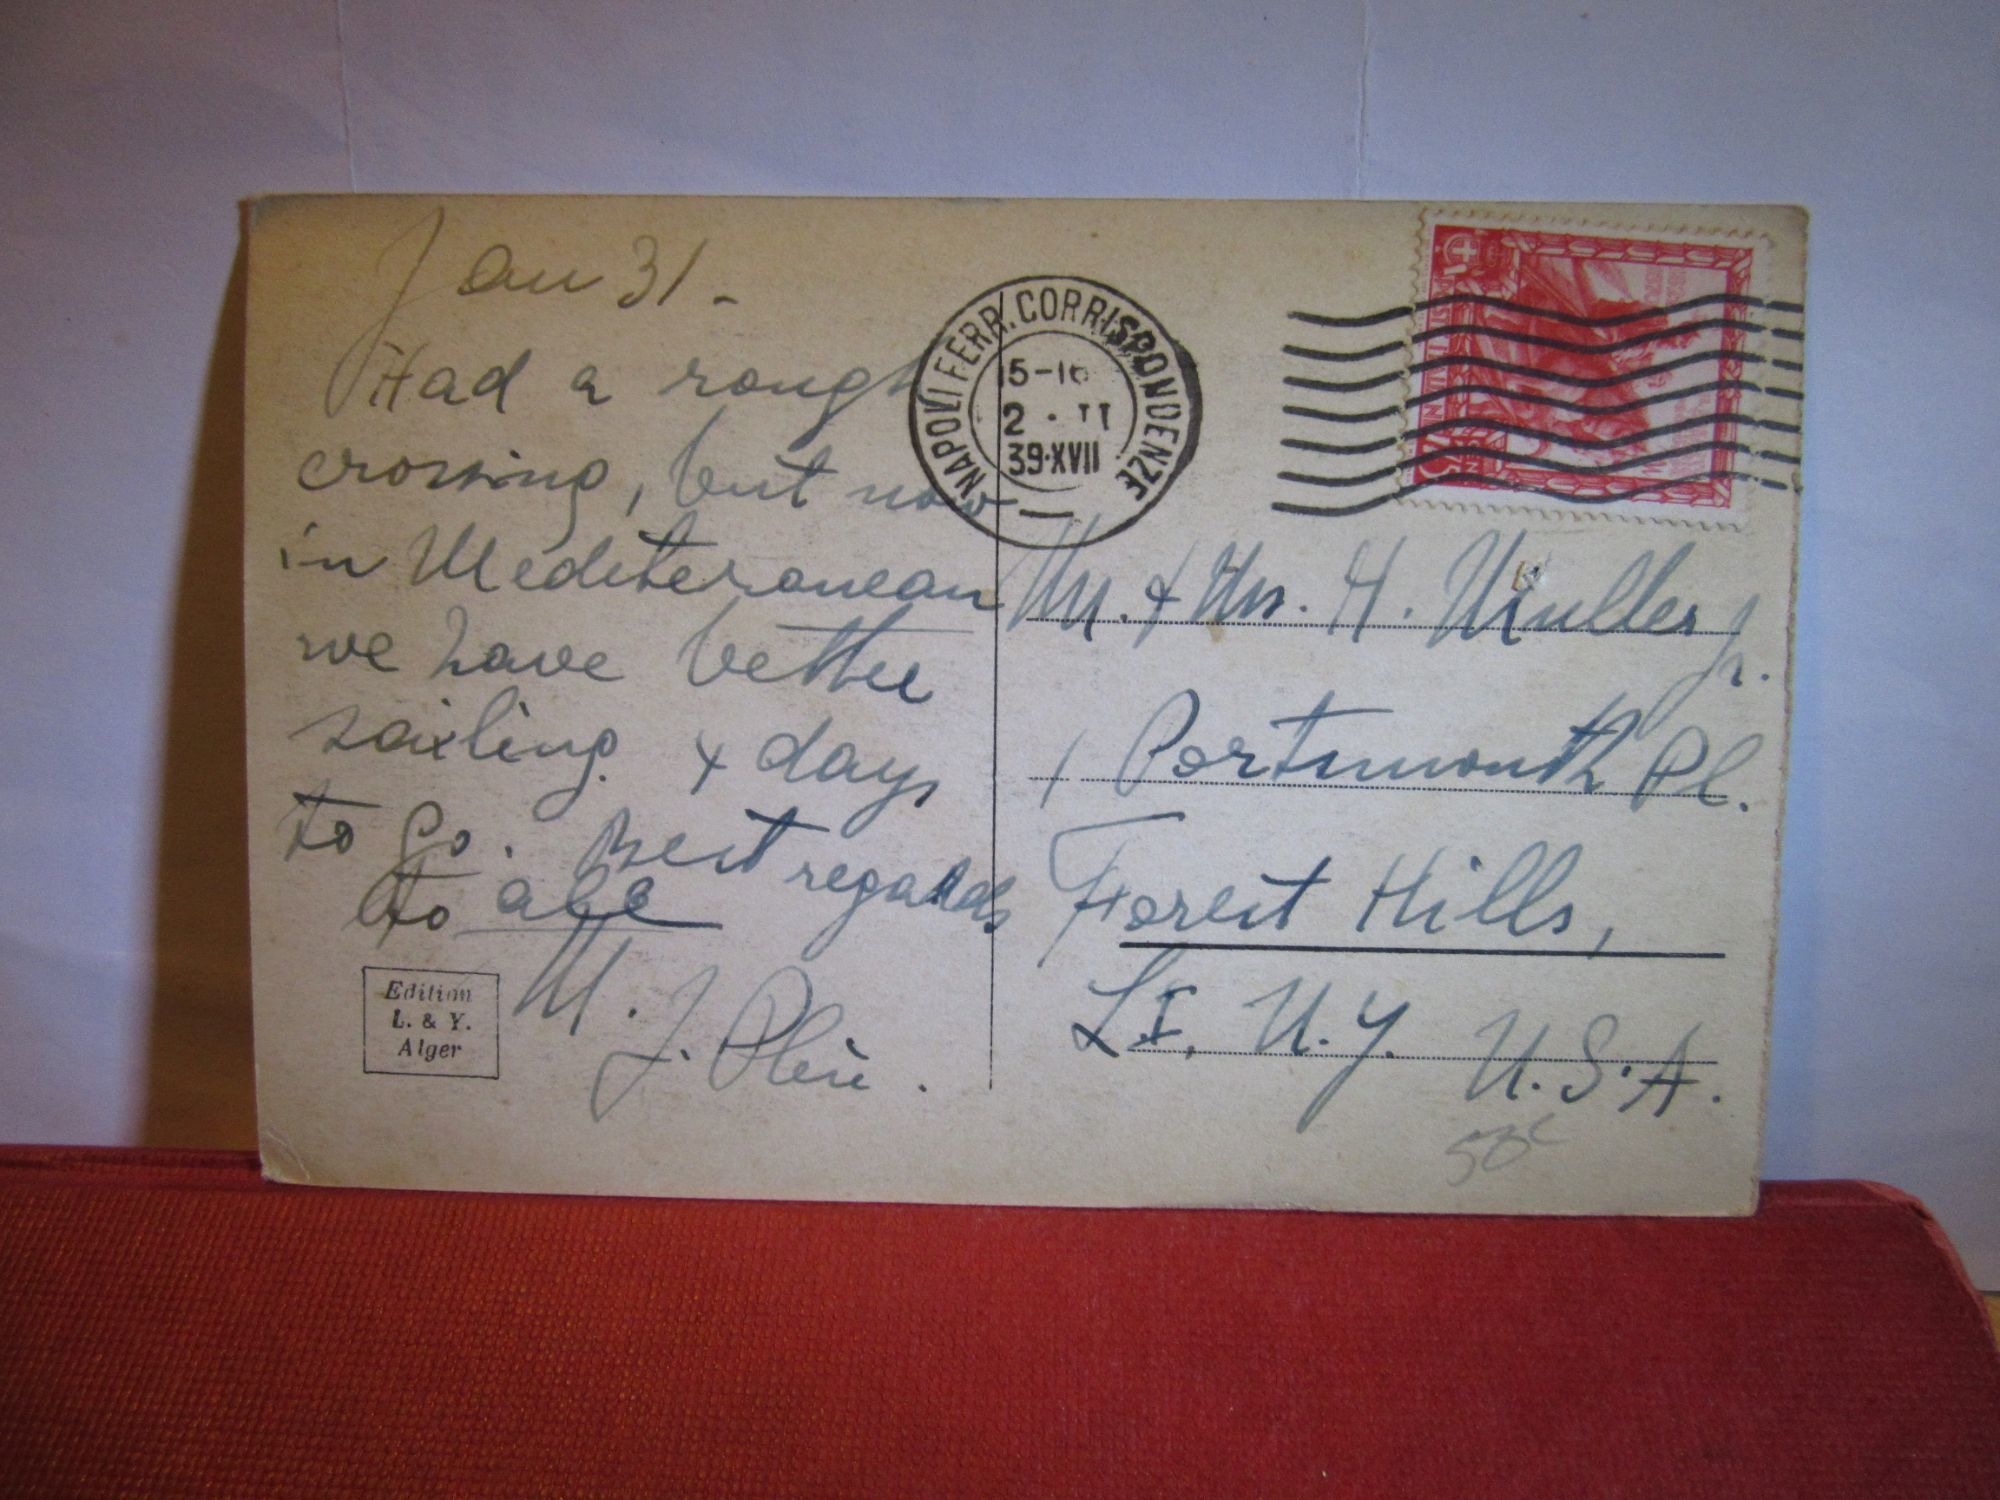 Jan 31 -
Had a rough
crossing, but now
in Mediteranean
we have better
sailing. 4 days
to go. Best regards
to all
M.
J.
Edition
L. & Y.
Alger
NAPOLI FERR. CORRISPONDENZE
15-16
2 · II
39·XVII
75
Mr. & Mrs. H. Muller Jr.
1 Portsmouth Pl.
Forest Hills,
L.I. N.Y. U.S.A.
50c